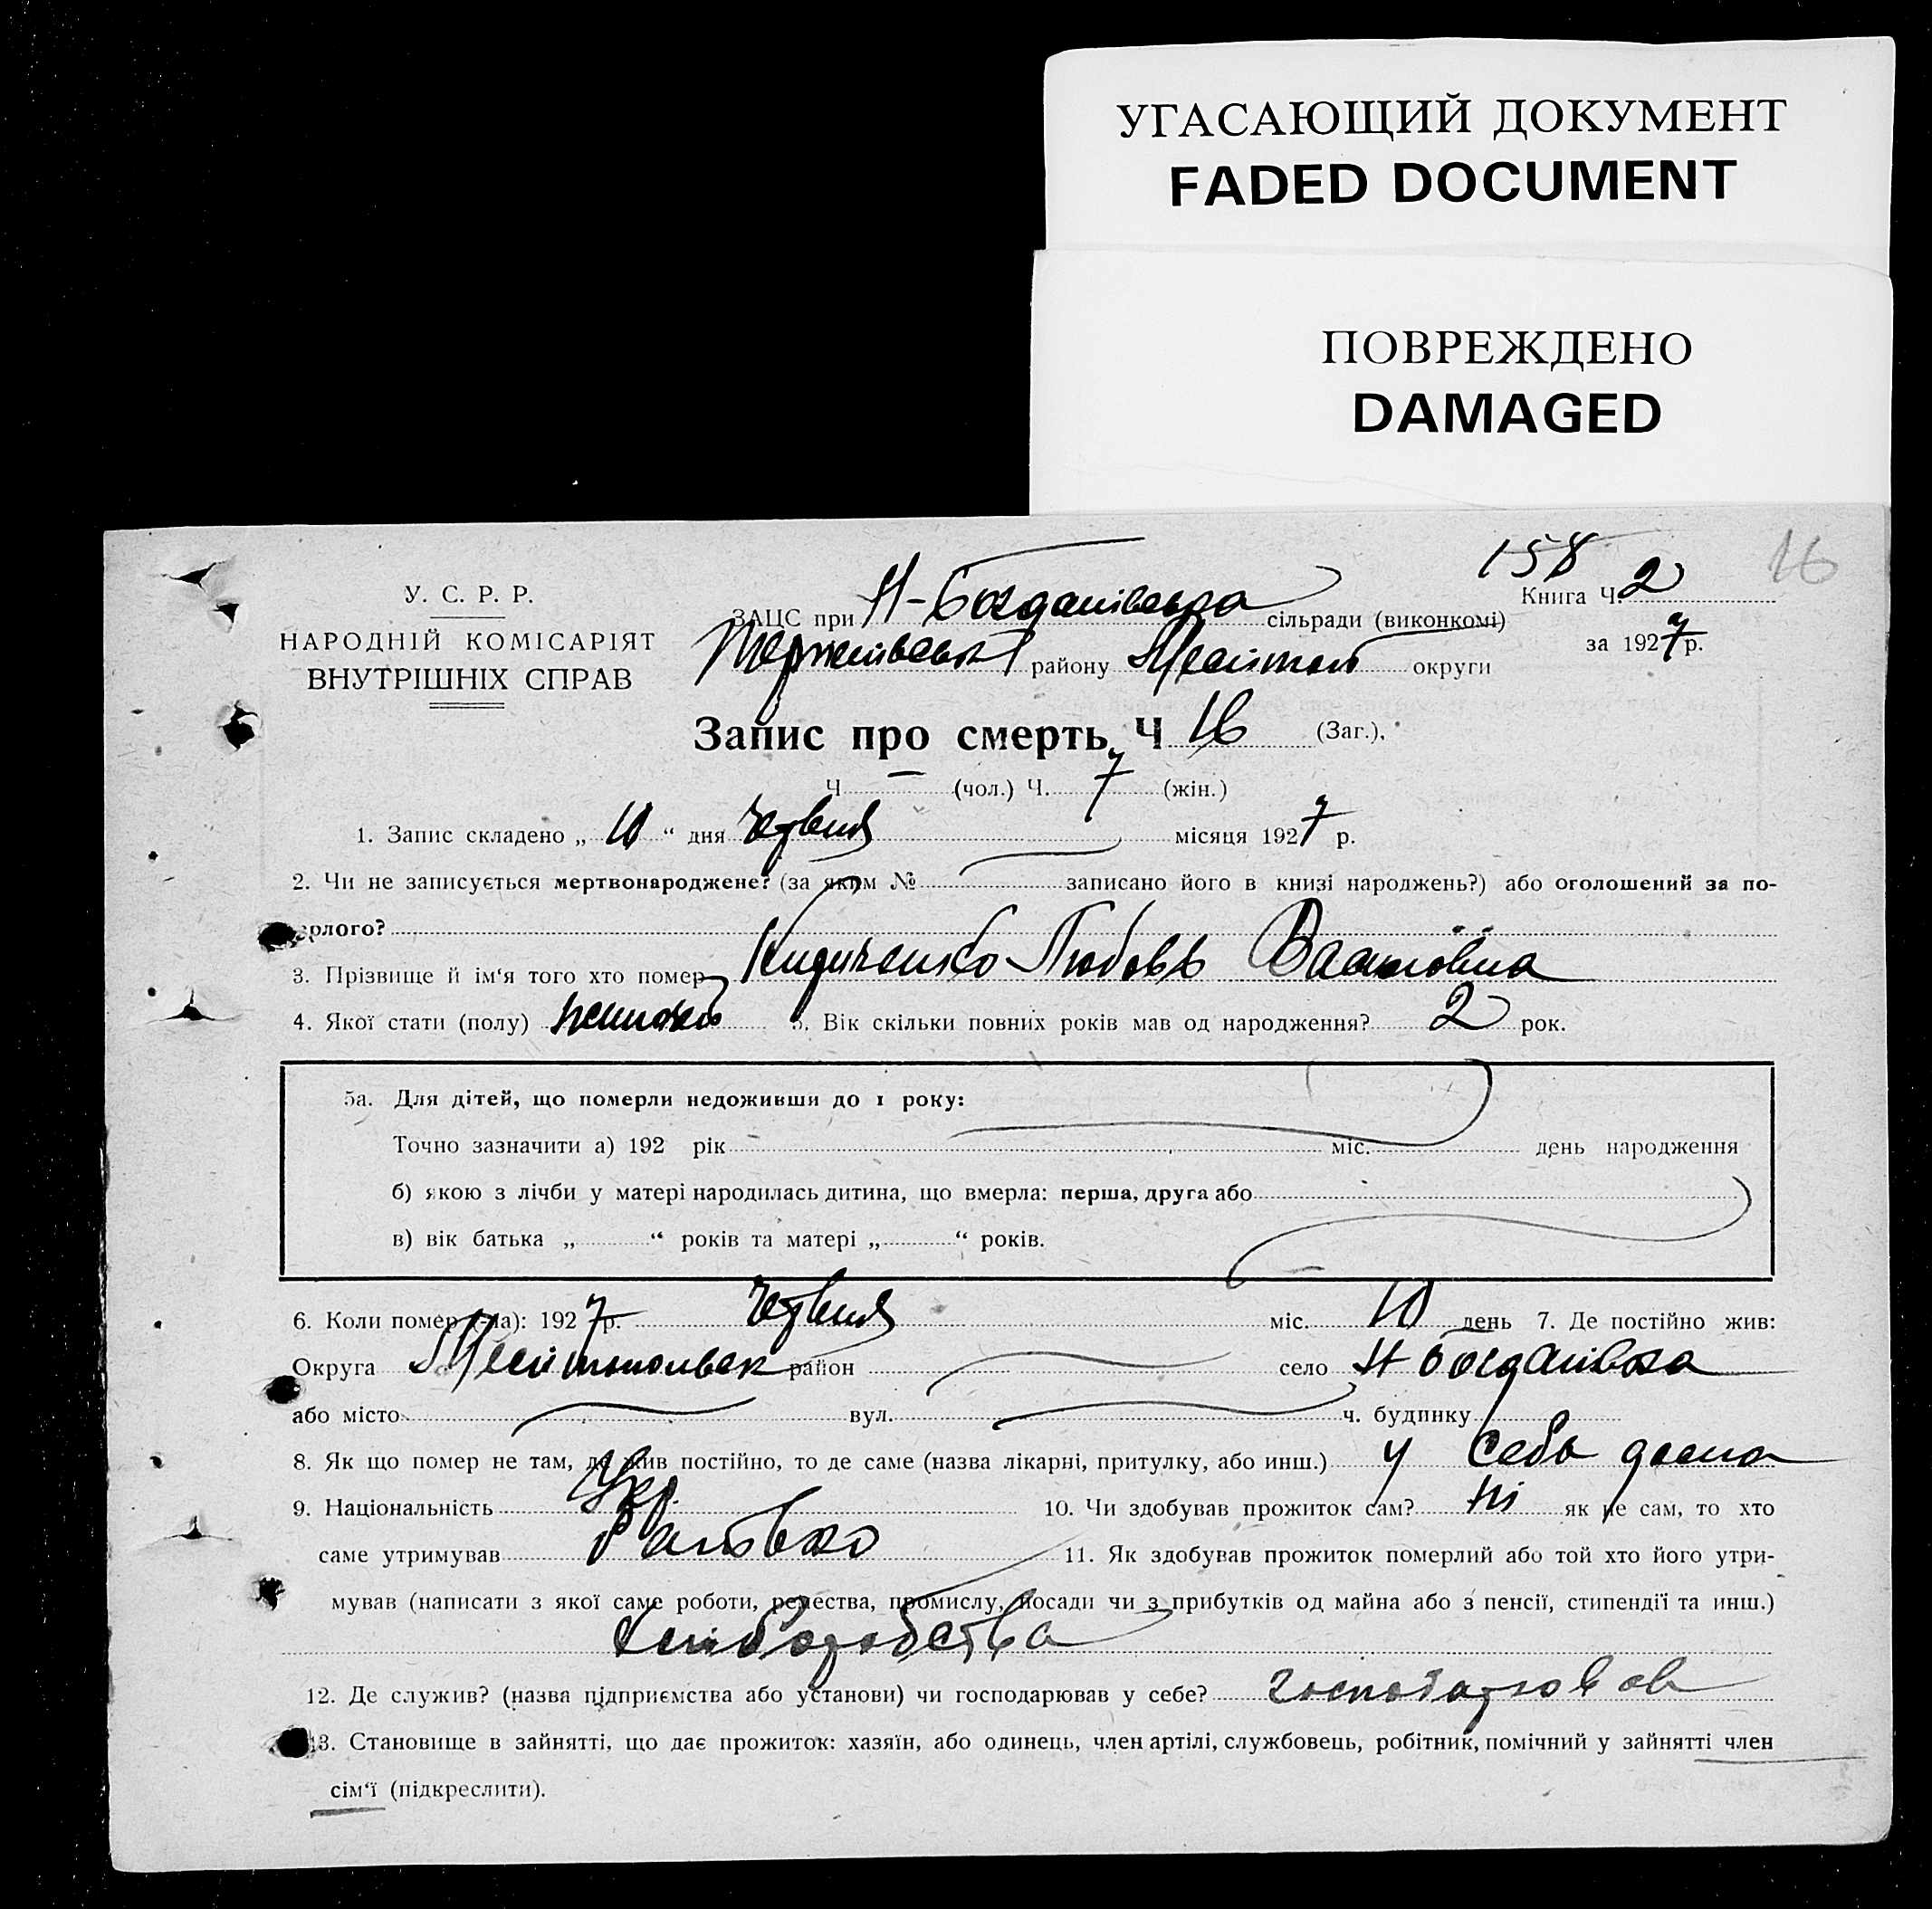 УГАСАЮЩИЙ ДОКУМЕНТ
FADED DOCUMENT
ПОВРЕЖДЕНО
DAMAGED
158
16
У. С. Р. Р.
НАРОДНІЙ КОМІСАРІЯТ
ВНУТРІШНІХ СПРАВ
Книга Ч. 2
за 1927 р.
ЗАЦС при Н-Богданівська сільради (виконкомі)
району Мелітоп округи
Запис про смерть Ч 16 (Заг.),
Ч — (чол.) Ч. 7 (жін.)
1. Запис складено „ 10 “ дня Червня місяця 1927 р.
2. Чи не записується мертвонароджене? (за яким № записано його в книзі народжень?) або оголошений за по-
ерлого?
3. Прізвище й ім‘я того хто помер Любовь
4. Якої стати (полу) 5. Вік скільки повних років мав од народження? 2 рок.
5а. Для дітей, що померли недоживши до 1 року:
Точно зазначити а) 192 рік міс. день народження
б) якою з лічби у матері народилась дитина, що вмерла: перша, друга або
в) вік батька „ “ років та матері „ “ років.
6. Коли помер (-ла): 1927 р. Червня міс. 10 день 7. Де постійно жив:
Округа Мелітопольск район село Н Богданівка
або місто вул. ч. будинку
8. Як що помер не там, де жив постійно, то де саме (назва лікарні, притулку, або инш.) у себе дома
9. Національність Укр. 10. Чи здобував прожиток сам? Ні як не сам, то хто
саме утримував Батько 11. Як здобував прожиток померлий або той хто його утри-
мував (написати з якої саме роботи, ремества, промислу, посади чи з прибутків од майна або з пенсії, стипендії та инш.)
Хліборобства
12. Де служив? (назва підприємства або установи) чи господарював у себе? господарював
13. Становище в зайнятті, що дає прожиток: хазяїн, або одинець, член артілі, службовець, робітник, помічний у зайнятті член
сім‘ї (підкреслити).